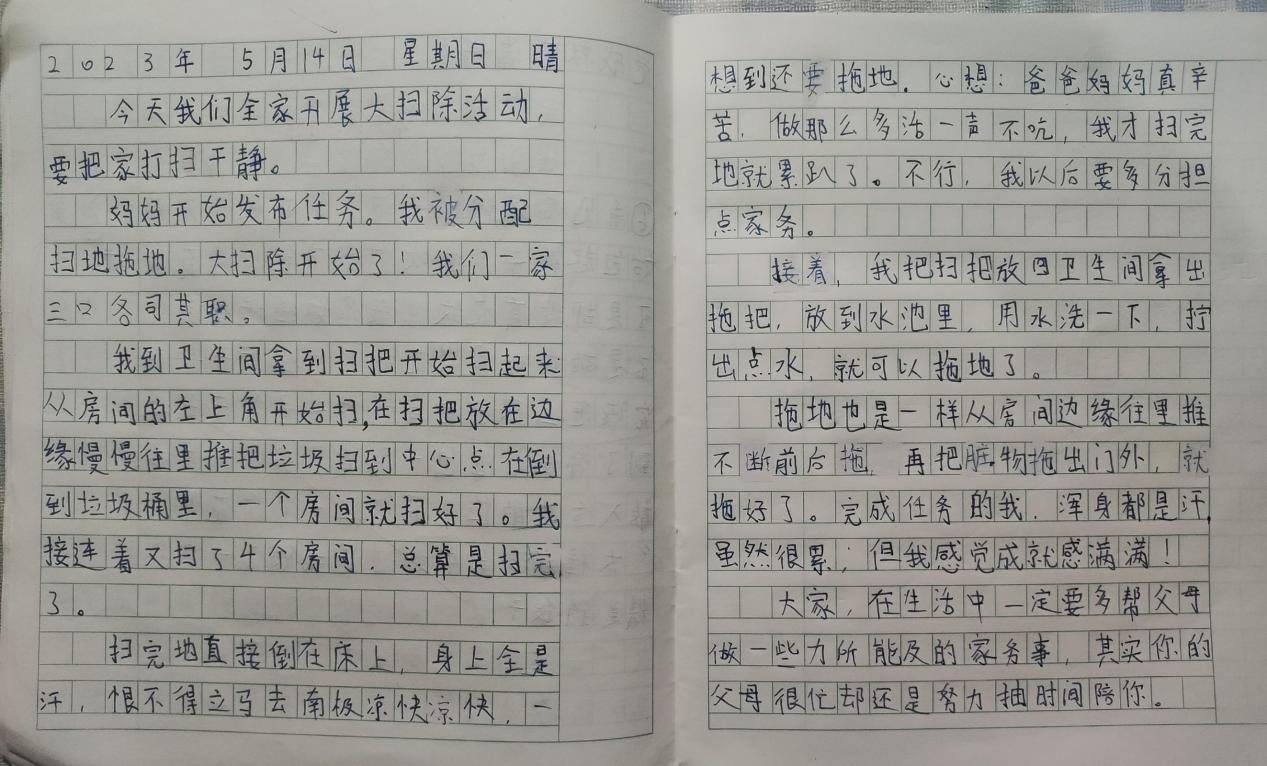 2023年 5月14日 星期日 晴
今天我们全家开展大扫除活动，
要把家打扫干静。
妈妈开始发布任务。我被分配
扫地拖地。大扫除开始了！我们一家
三口各司其职。
我到卫生间拿到扫把开始扫起来
从房间的左上角开始扫，在扫把放在边
缘慢慢往里推把垃圾扫到中心点在倒
到垃圾桶里，一个房间就扫好了。我
接连着又扫了4个房间．总算是扫完
了。
扫完地直接倒在床上，身上全是
汗，恨不得立马去南极凉快凉快，一
想到还要拖地．心想：爸爸妈妈真辛
苦，做那么多活一声不吭，我才扫完
地就累趴了。不行，我以后要多分担
点家务。
接着，我把扫把放回卫生间拿出
拖把，放到水池里，用水洗一下，拧
出点水，就可以拖地了。
拖地也是一样从房间边缘往里推
不断前后拖，再把脏物拖出门外，就
拖好了。完成任务的我．浑身都是汗，
虽然很累；但我感觉成就感满满！
大家，在生活中一定要多帮父母
做一些力所能及的家务事，其实你的
父母很忙却还是努力抽时间陪你。